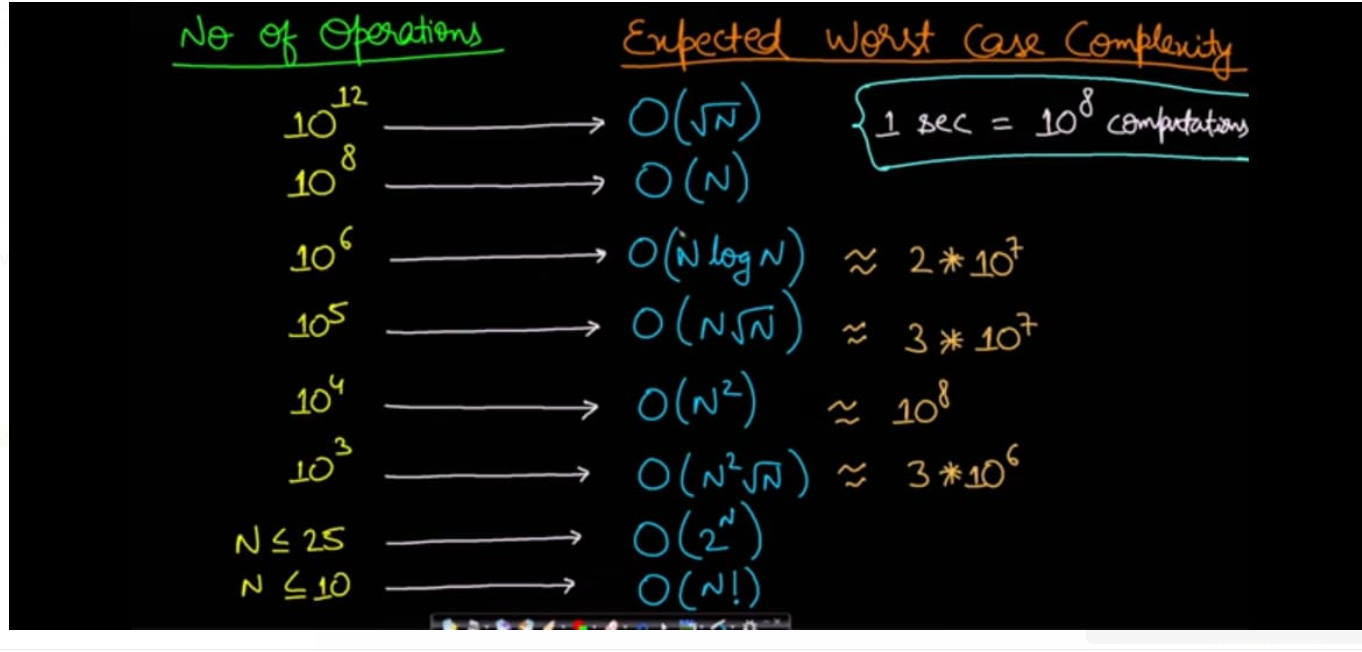 No of Operations Expected Worst Case Complexity
10^12 → O(√N) { 1 sec = 10^8 computations
10^8 → O(N)
10^6 → O(N log N) ≈ 2*10^7
10^5 → O(N√N) ≈ 3*10^7
10^4 → O(N^2) ≈ 10^8
10^3 → O(N^2√N) ≈ 3*10^6
N ≤ 25 → O(2^N)
N ≤ 10 → O(N!)